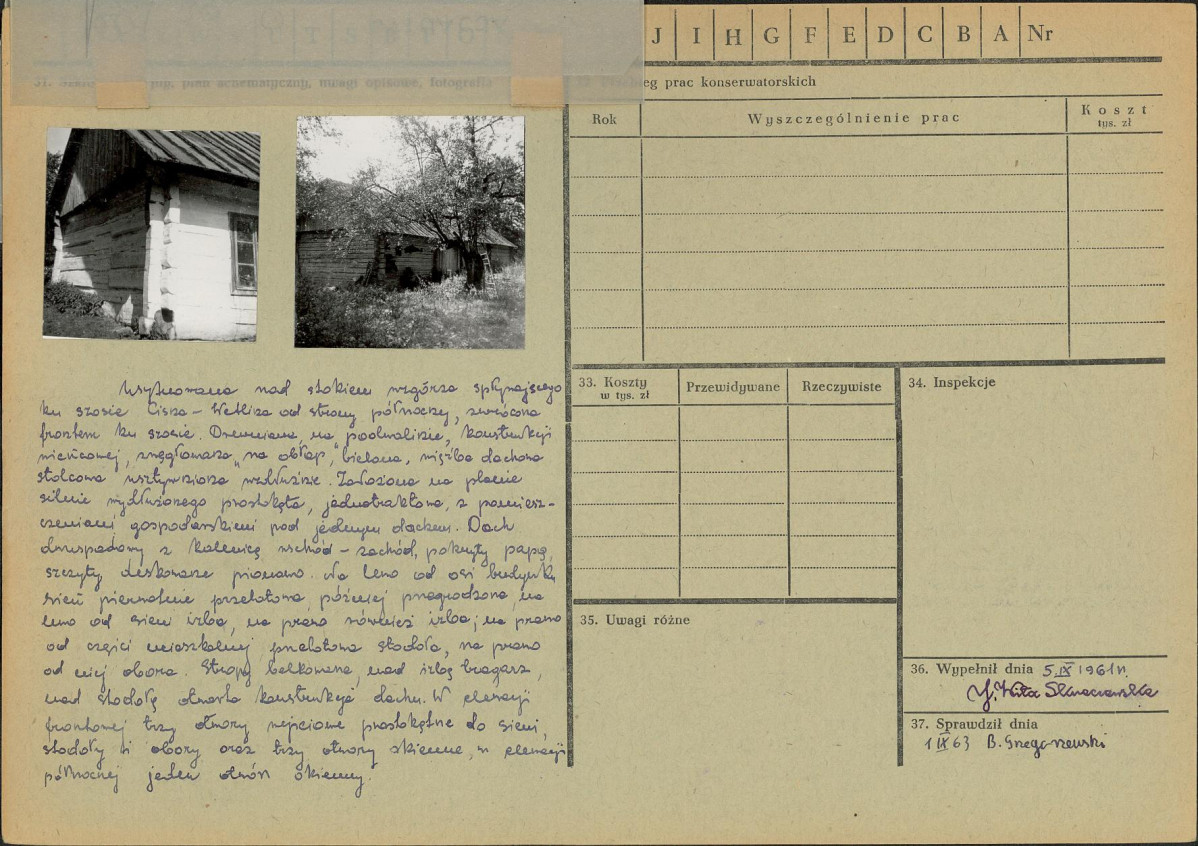 J I H G F E D C B A Nr
plan schematyczny, uwagi opisowe, fotografia
prac konserwatorskich
Rok
Wyszczególnienie prac
Koszt
tys. zł
Usytuowana nad stokiem wzgórza spływającego
ku szosie Cisna – Wetlina od strony północnej, zwrócona
frontem ku szosie. Drewniana, na podwalinie, konstrukcji
wieńcowej, węgłowana "na obłap", bielona, więźba dachowa
stolcowa usztywniona wzdłużnie. Założona na planie
silnie wydłużonego prostokąta, jednotraktowa, z pomiesz-
czeniami gospodarskimi pod jednym dachem. Dach
dwuspadowy z kalenicą wschód – zachód, pokryty papą,
szczyty deskowane pionowo. Na lewo od osi budynku
sień pierwotnie przelotowa, później przegrodzona, na
lewo od sieni izba, na prawo również izba; na prawo
od części mieszkalnej przelotowa stodoła, na prawo
od niej obora. Stropy belkowane, nad izbą tragarz,
nad stodołą otwarta konstrukcja dachu. W elewacji
frontowej trzy otwory wejściowe prostokątne do sieni,
stodoły i obory oraz trzy otwory okienne, w elewacji
północnej jeden otwór okienny.
33. Koszty
w tys. zł
Przewidywane
Rzeczywiste
34. Inspekcje
35. Uwagi różne
36. Wypełnił dnia 5.IX 1961 r.
37. Sprawdził dnia
1 IX 63 B. Gregorzewski